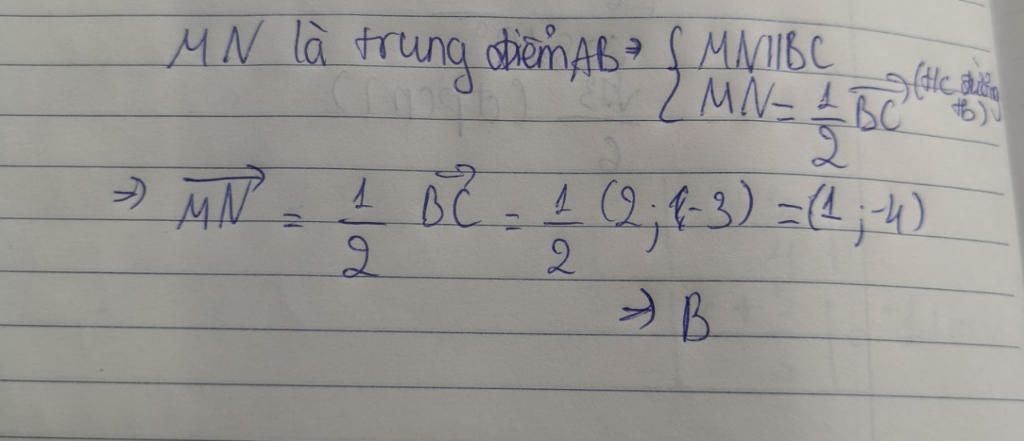 MN là trung điểm AB → { MN // BC
MN = 1/2 BC (t/c đường tb)
⇒ MN = 1/2 BC = 1/2 (2; -3) = (1; -4)
⇒ B